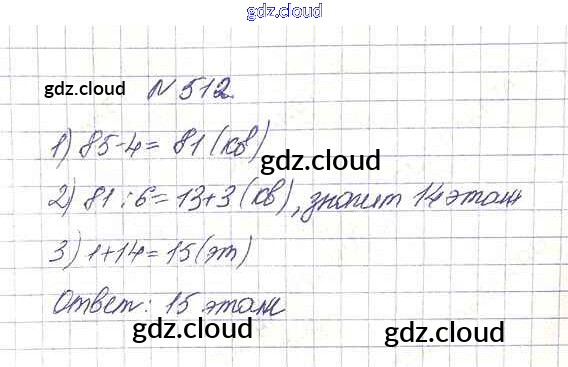 gdz.cloud
gdz.cloud
N 512.
1) 85-4= 81 (кв)
gdz.cloud
2) 81 : 6 = 13+3 (кв), значит 14 этаж
3) 1+14=15 (эт)
gdz.cloud
Ответ: 15 этаж
gdz.cloud
gdz.cloud